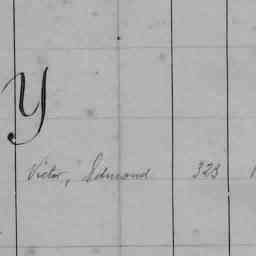 Y
Victor, Edmond 323